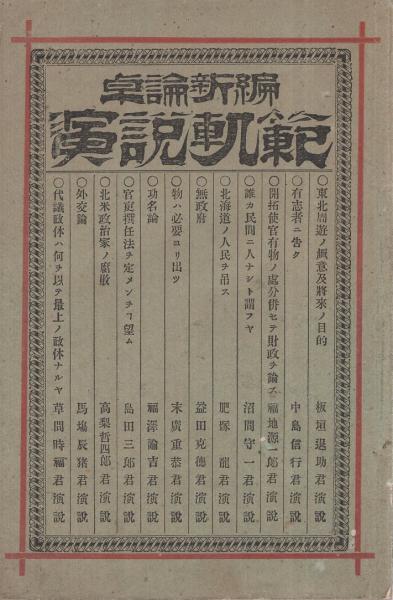 卓論新編
演説軌範
○東北周遊ノ概意及將來ノ目的 板垣退助君演説
○有志者ニ告ク 中島信行君演説
○開拓使官有物ノ處分併セテ財政ヲ論ス 福地源一郎君演説
○誰カ民間ニ人ナシト謂フヤ 沼間守一君演説
○北海道ノ人民ヲ吊ス 肥塚龍君演説
○無政府 益田克德君演説
○物ハ必要ヨリ出ツ 末廣重恭君演説
○功名論 福澤諭吉君演説
○官吏撰任法ヲ定メンヿヲ望ム 島田三郎君演説
○北米政治家ノ腐敗 高梨哲四郎君演説
○外交論 馬場辰猪君演説
○代議政体ハ何ヲ以テ最上ノ政体ナルヤ 草間時福君演説